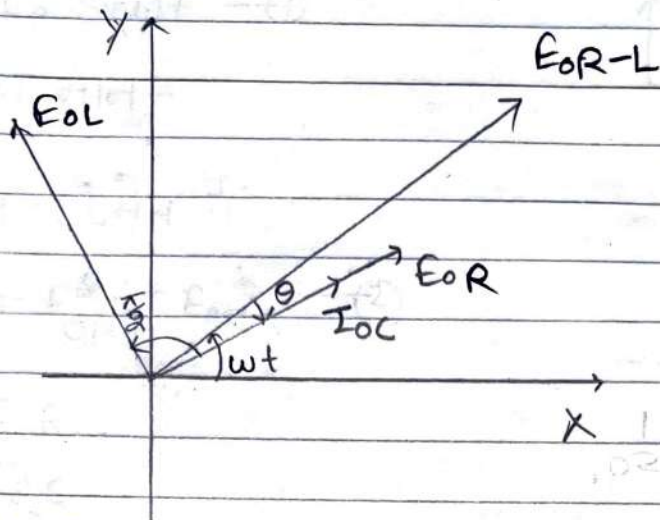 y
E₀R-L
E₀L
E₀R
θ
I₀C
π/2
ωt
X